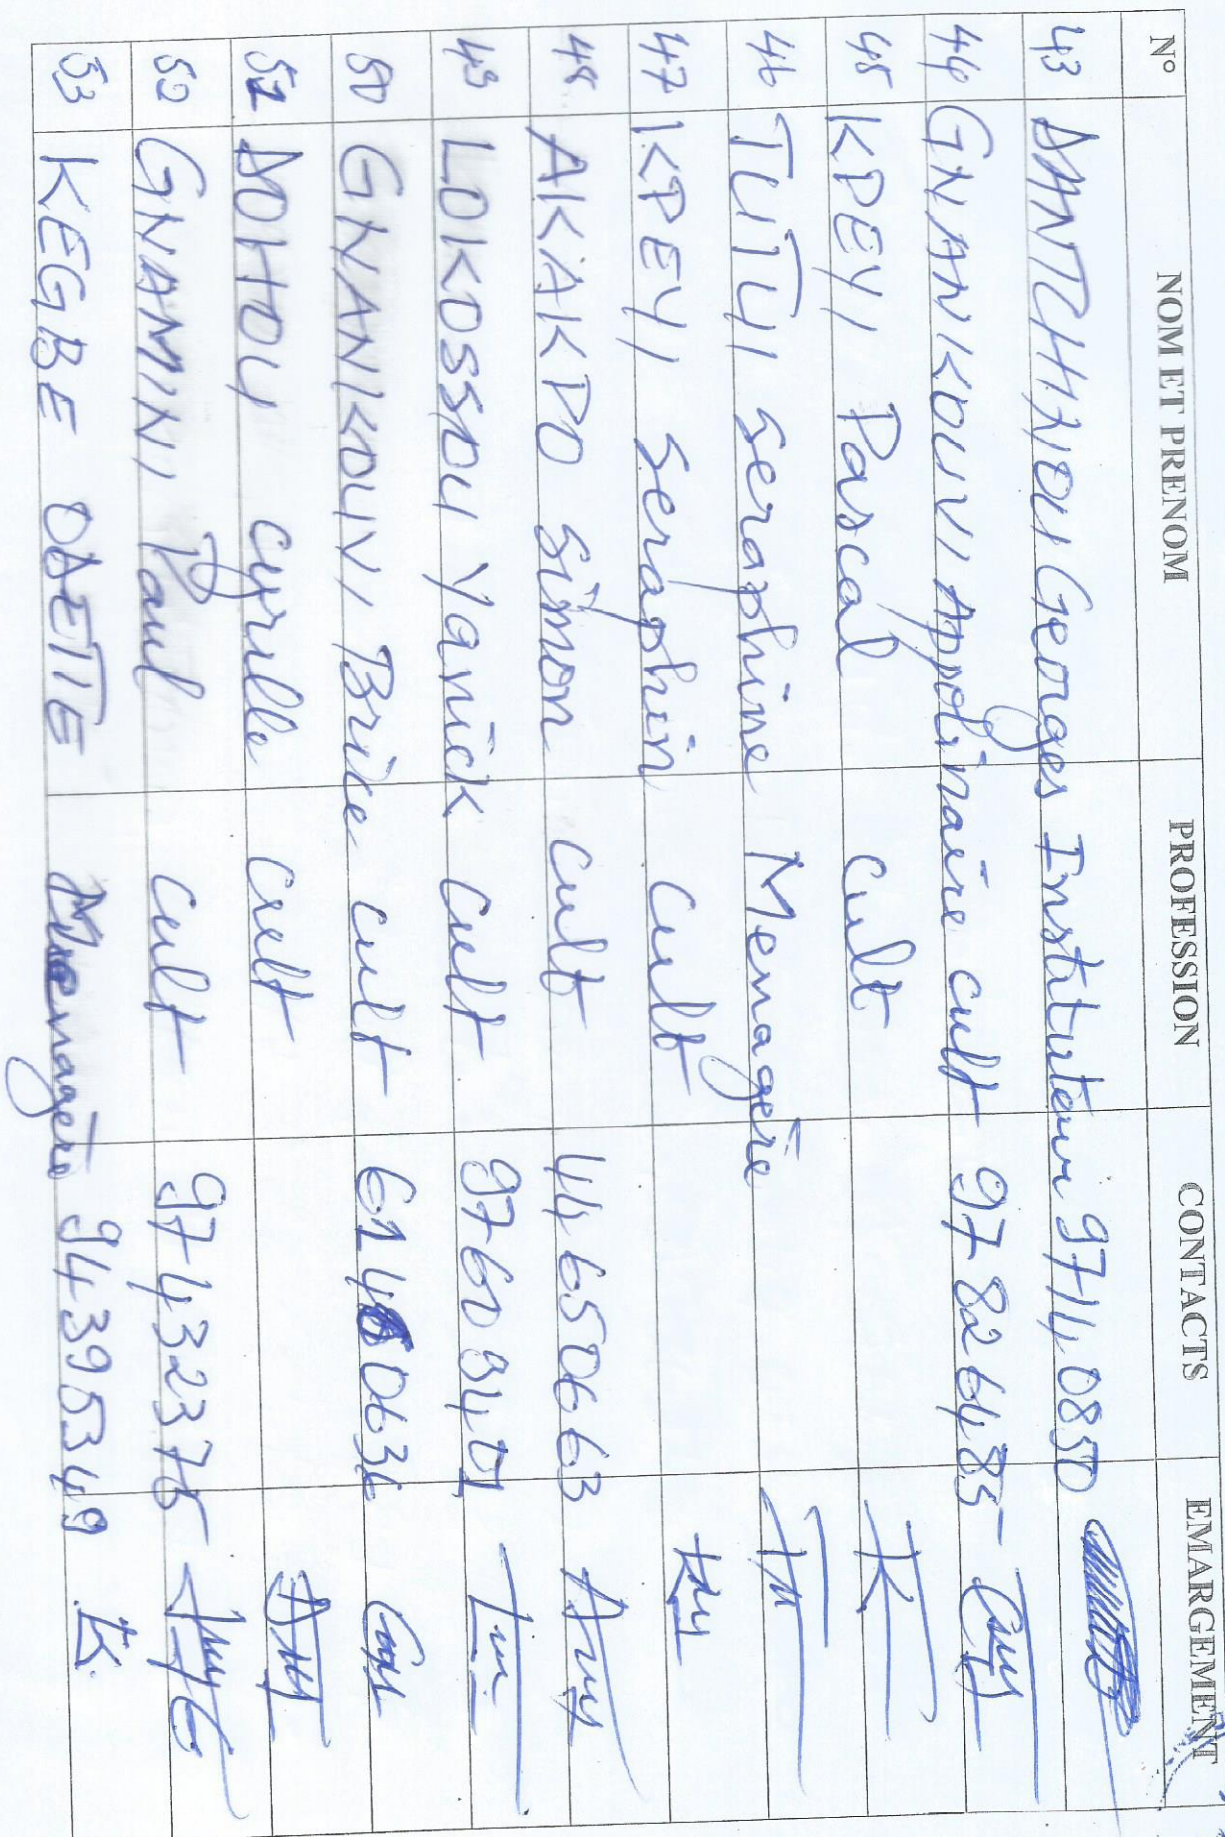 N° NOM ET PRENOM PROFESSION CONTACTS EMARGEMENT
43 Georges Instituteur 97140850
44 GNANIKOUVI Appolinaire cult 97826485
45 KPEYI Pascal cult
46 TUTUI Seraphine Menagère
47 KPEYI Seraphin cult
48 AKAKPO Simon cult 44650663
49 LOKOSSOU Yanick cult 97609401
50 GNANIKOUVI Brice cult
51 DOHOU Cyrille cult
52 GNAMINI Paul cult 97432375
53 KEGBE ODETTE Menagère 94395349